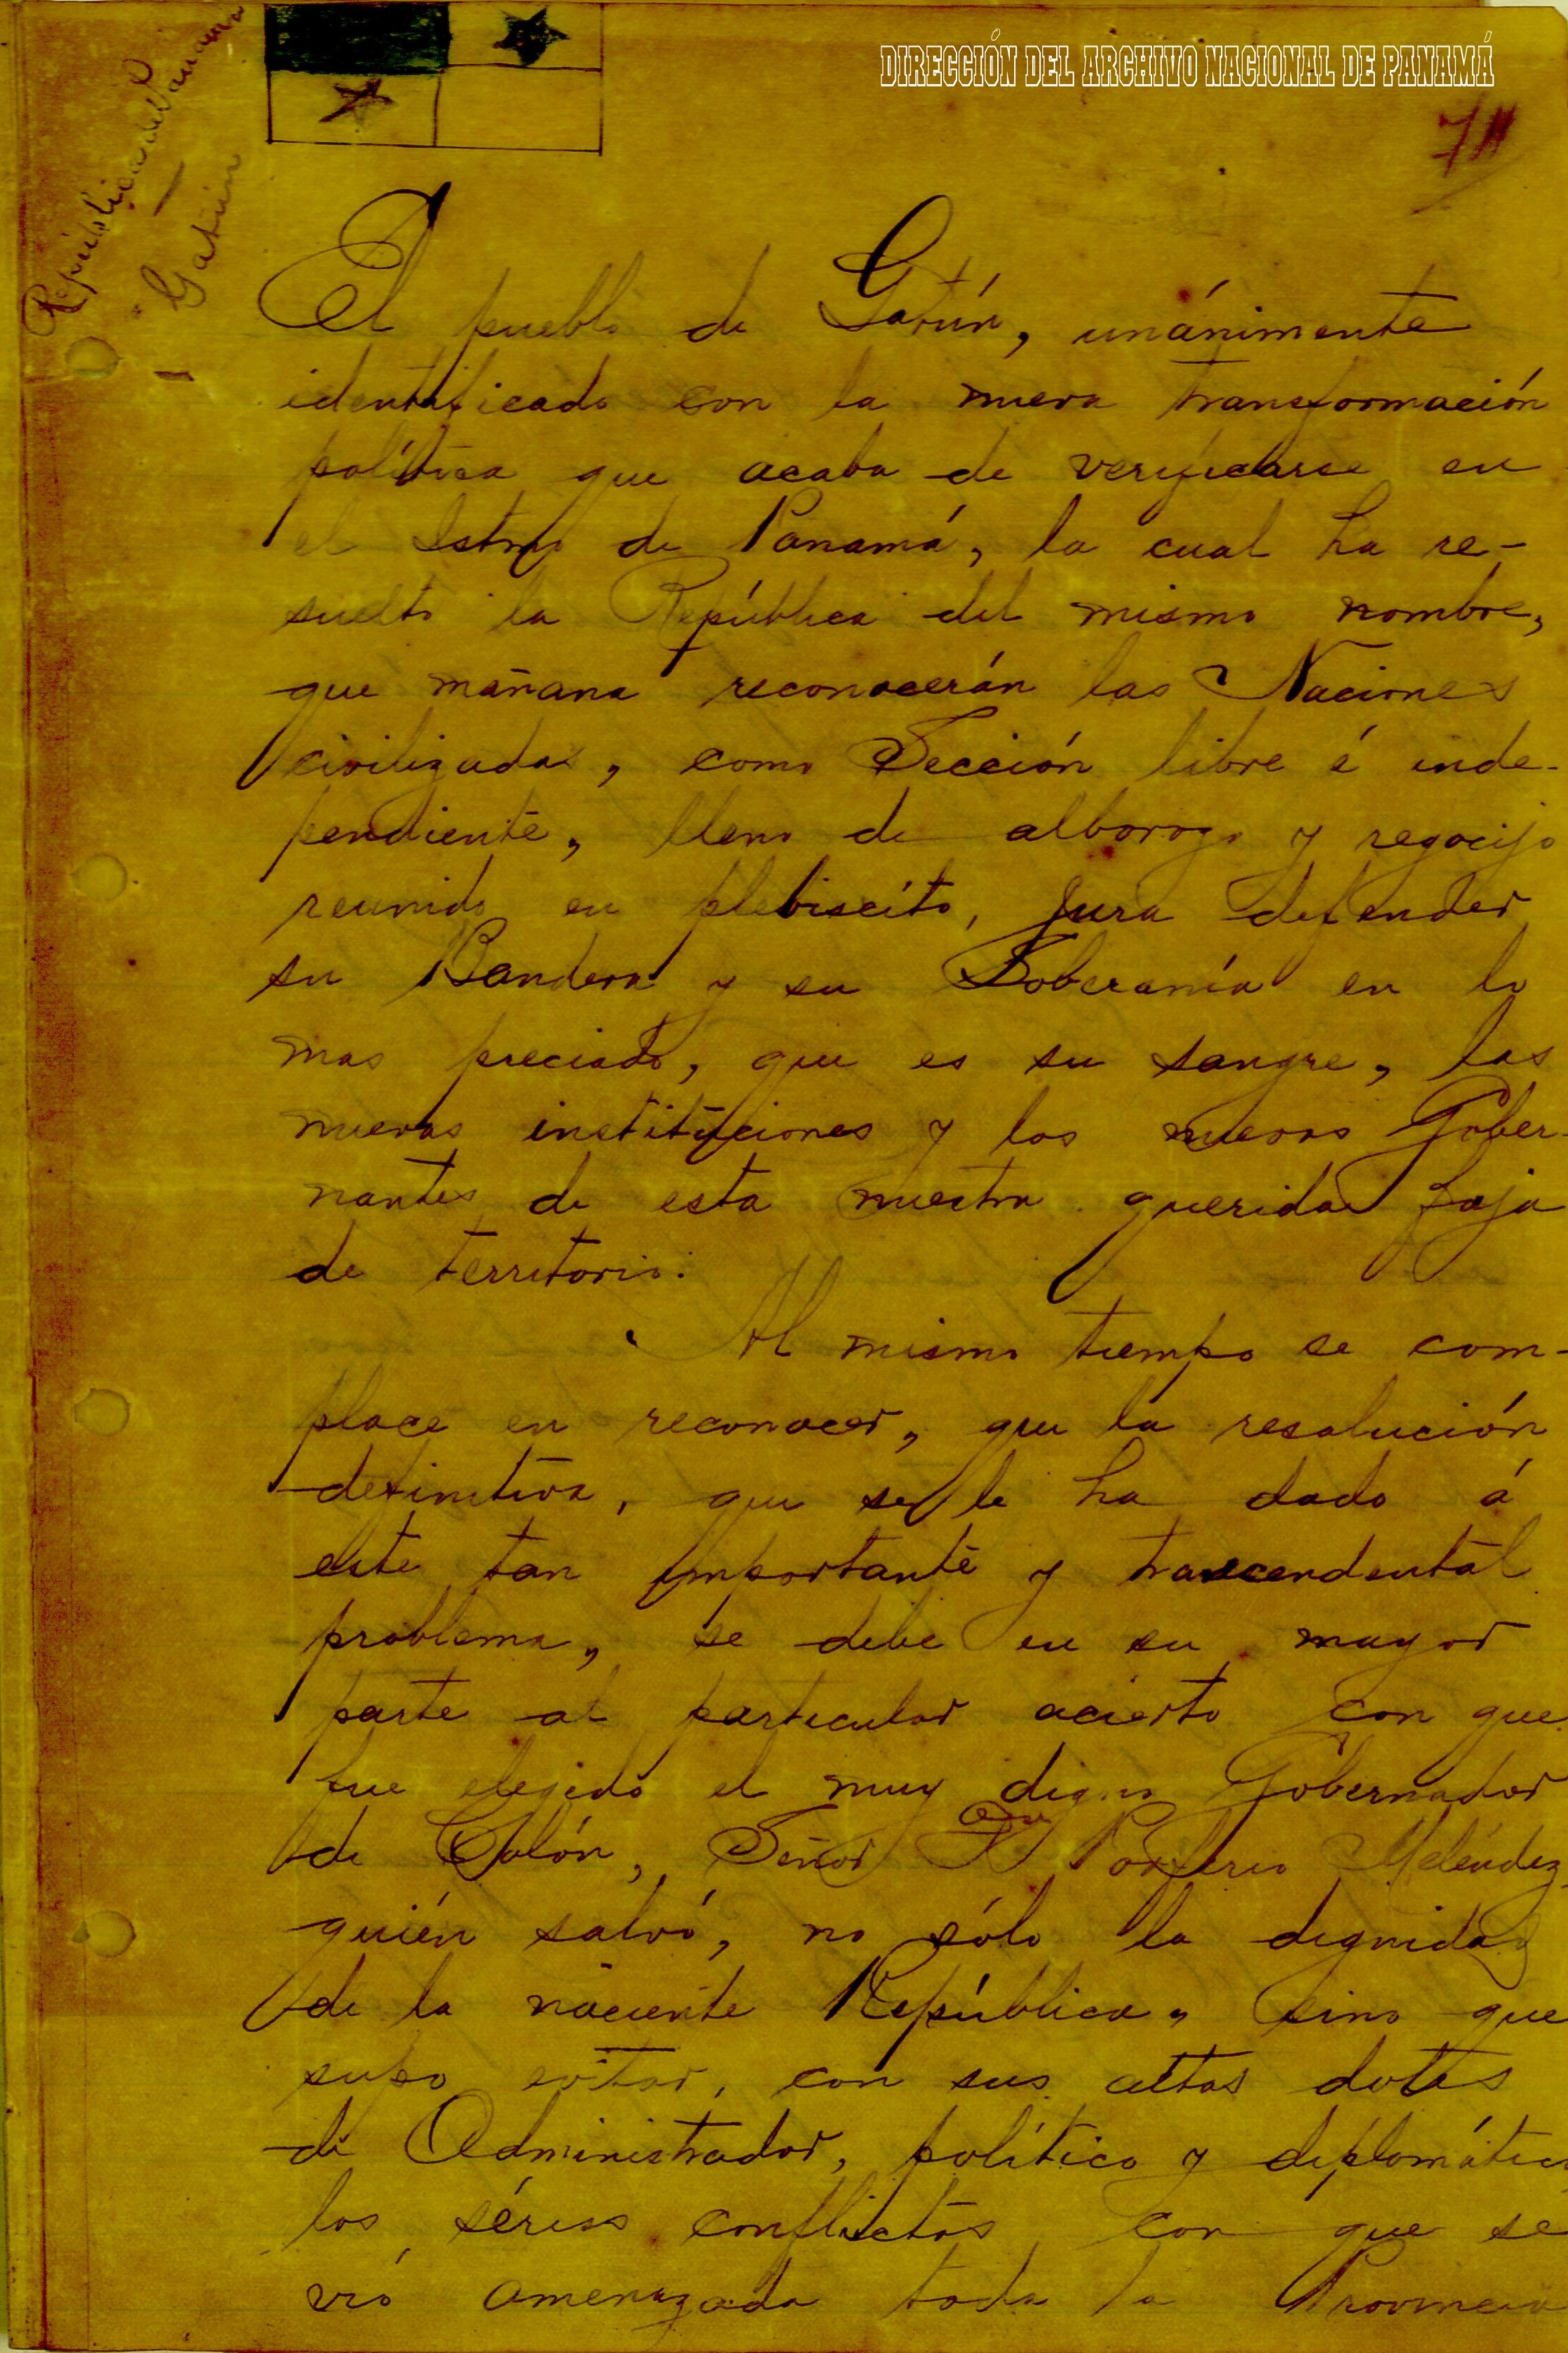 DIRECCIÓN DEL ARCHIVO NACIONAL DE PANAMÁ
República de Panamá
Gatún
El pueblo de Gatún, unánimente
identificado con la nueva transformación
política que acaba de verificarse en
el Istmo de Panamá, la cual ha re-
suelto la República del mismo nombre,
que mañana reconocerán las Naciones
civilizadas, como Sección libre é inde-
pendiente, lleno de alborozo y regocijo
reunido en plebiscito, jura defender
su Bandera y su Soberanía en lo
mas preciado, que es su sangre, las
nuevas instituciones y los nuevos Gober-
nantes de esta nuestra querida faja
de territorio.
Al mismo tiempo se com-
place en reconocer, que la resolución
definitiva, que se le ha dado á
este tan importante y trascendental
problema, se debe en su mayor
parte al particular acierto con que
fue elegido el muy digno Gobernador
de Colón, Señor Porfirio Meléndez
quién salvó, no sólo la dignidad
de la naciente República, sino que
supo evitar, con sus altas dotes
de Administrador, político y diplomático
los sérios conflictos con que se
vió amenazada toda la Provincia